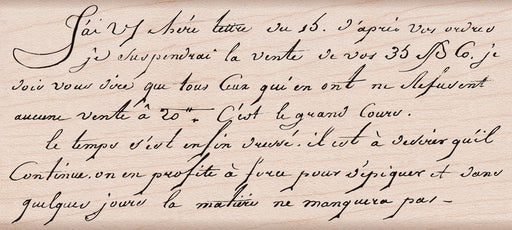 J'ai Vʳ chére lettre du 15. d'aprés vos ordres
je suspendrai la vente de vos 35 Co. je
dois vous dire que tous ceux qui en ont ne Refusent
aucune vente â 20". C'est le grand Cours.
le temps s'est enfin dressé. il est à desirer qu'il
Continue. on en profite à force pour dépiquer et dans
quelques jours la matiére ne manquera pas —